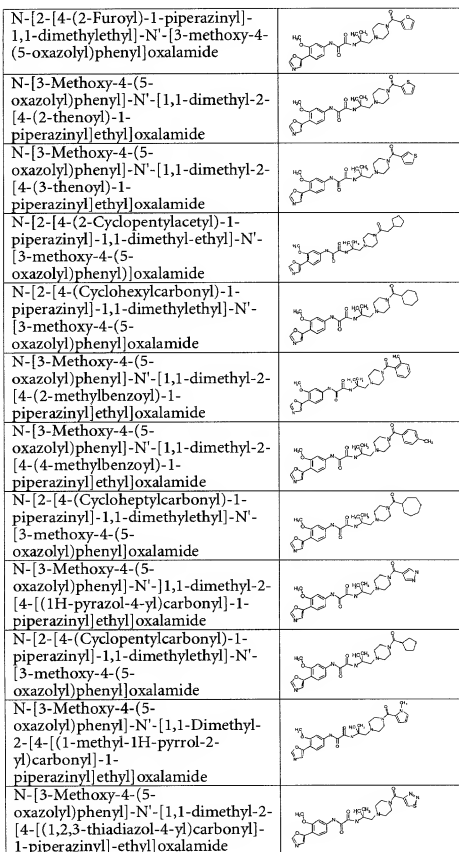 N-[2-[4-(2-Furoyl)-1-piperazinyl]-
1,1-dimethylethyl]-N'-[3-methoxy-4-
(5-oxazolyl)phenyl]oxalamide
N-[3-Methoxy-4-(5-
oxazolyl)phenyl]-N'-[1,1-dimethyl-2-
[4-(2-thenoyl)-1-
piperazinyl]ethyl]oxalamide
N-[3-Methoxy-4-(5-
oxazolyl)phenyl]-N'-[1,1-dimethyl-2-
[4-(3-thenoyl)-1-
piperazinyl]ethyl]oxalamide
N-[2-[4-(2-Cyclopentylacetyl)-1-
piperazinyl]-1,1-dimethyl-ethyl]-N'-
[3-methoxy-4-(5-
oxazolyl)phenyl)]oxalamide
N-[2-[4-(Cyclohexylcarbonyl)-1-
piperazinyl]-1,1-dimethylethyl]-N'-
[3-methoxy-4-(5-
oxazolyl)phenyl]oxalamide
N-[3-Methoxy-4-(5-
oxazolyl)phenyl]-N'-[1,1-dimethyl-2-
[4-(2-methylbenzoyl)-1-
piperazinyl]ethyl]oxalamide
N-[3-Methoxy-4-(5-
oxazolyl)phenyl]-N'-[1,1-dimethyl-2-
[4-(4-methylbenzoyl)-1-
piperazinyl]ethyl]oxalamide
N-[2-[4-(Cycloheptylcarbonyl)-1-
piperazinyl]-1,1-dimethylethyl]-N'-
[3-methoxy-4-(5-
oxazolyl)phenyl]oxalamide
N-[3-Methoxy-4-(5-
oxazolyl)phenyl]-N'-]1,1-dimethyl-2-
[4-[(1H-pyrazol-4-yl)carbonyl]-1-
piperazinyl]ethyl]oxalamide
N-[2-[4-(Cyclopentylcarbonyl)-1-
piperazinyl]-1,1-dimethylethyl]-N'-
[3-methoxy-4-(5-
oxazolyl)phenyl]oxalamide
N-[3-Methoxy-4-(5-
oxazolyl)phenyl]-N'-[1,1-Dimethyl-
2-[4-[(1-methyl-1H-pyrrol-2-
yl)carbonyl]-1-
piperazinyl]ethyl]oxalamide
N-[3-Methoxy-4-(5-
oxazolyl)phenyl]-N'-[1,1-dimethyl-2-
[4-[(1,2,3-thiadiazol-4-yl)carbonyl]-
1-piperazinyl]-ethyl]oxalamide